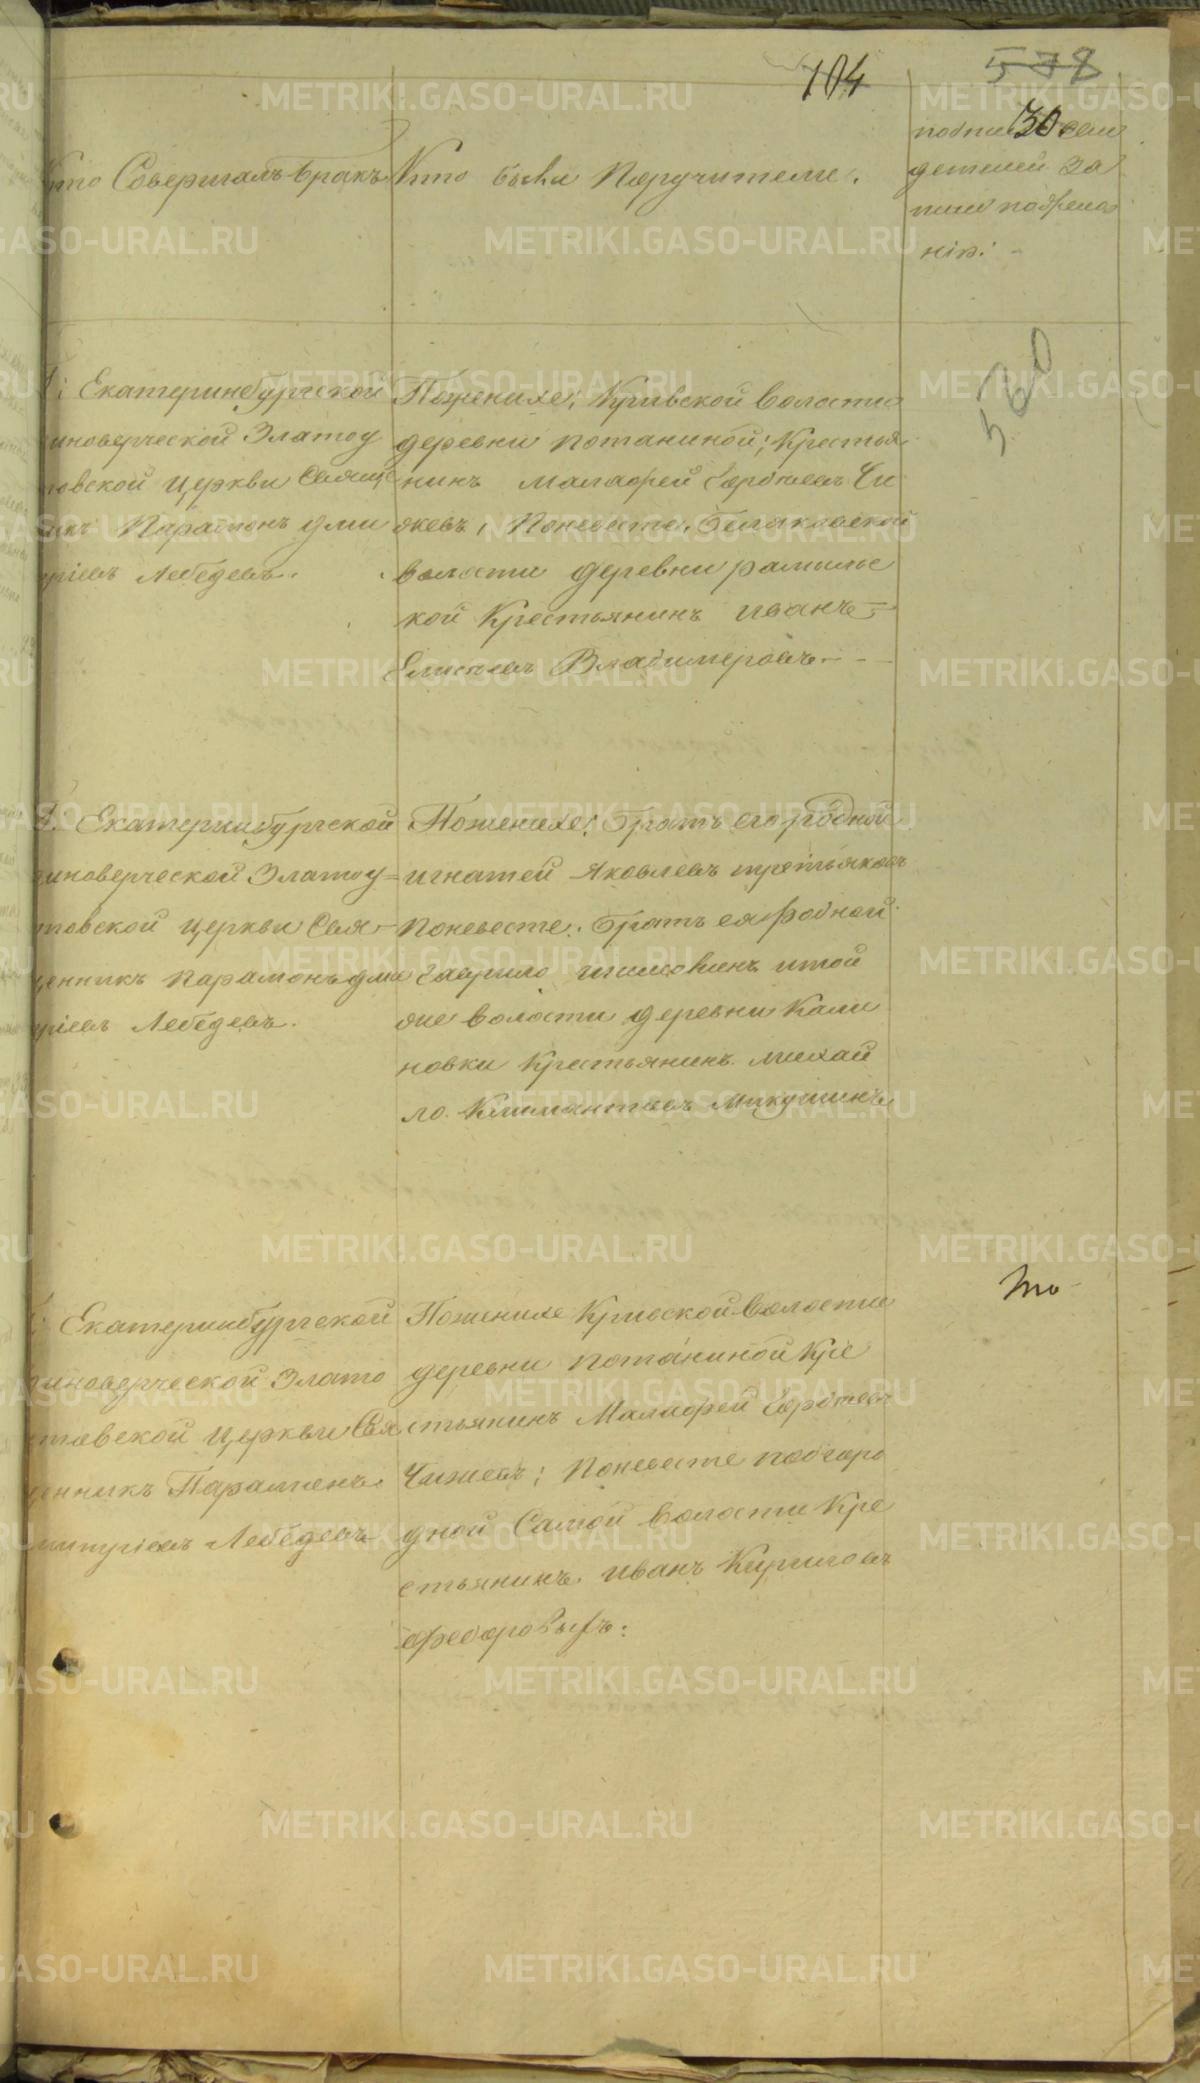 104
578
30
Кто Совершалъ бракъ
Кто были Поручители.
подпись сви
детелей за
писи по жела
нію:
520
Екатеринбургской
диноверческой Златоу
товской церкви Свящ
икъ Парамонъ Дми
тріевъ Лебедевъ.
Пожениху; Кривской волости
деревни потаниной; Крестья
нинъ Малафей Чи
жевъ, Поневесте, Беляковской
волости деревни рамыль
кой Крестьянинъ иванъ
Елисеевъ Владимеровъ
Екатеринбургской
диноверческой Златоу
товской церкви Свя
щенникъ парамонъ дми
тріевъ Лебедевъ.
Пожениху: Братъ его родной
игнатей Яковлевъ третьяковъ
Поневесте: Братъ ея родной
Гаврило итой
же волости деревни Кали
новки Крестьянинъ Михай
ло Климантьевъ Микушинъ
Екатеринбургской
диноверческой Злато
стовской церкви Свя
щенникъ Парамонъ
митріевъ Лебедевъ
Пожениху Кривской волости
деревни потаниной Кре
стьянинъ Малафей
Чижевъ; Поневесте подгоро
дной Самой волости Кре
стьянинъ иванъ Кириловъ
федоровыхъ:
METRIKI.GASO-URAL.RU